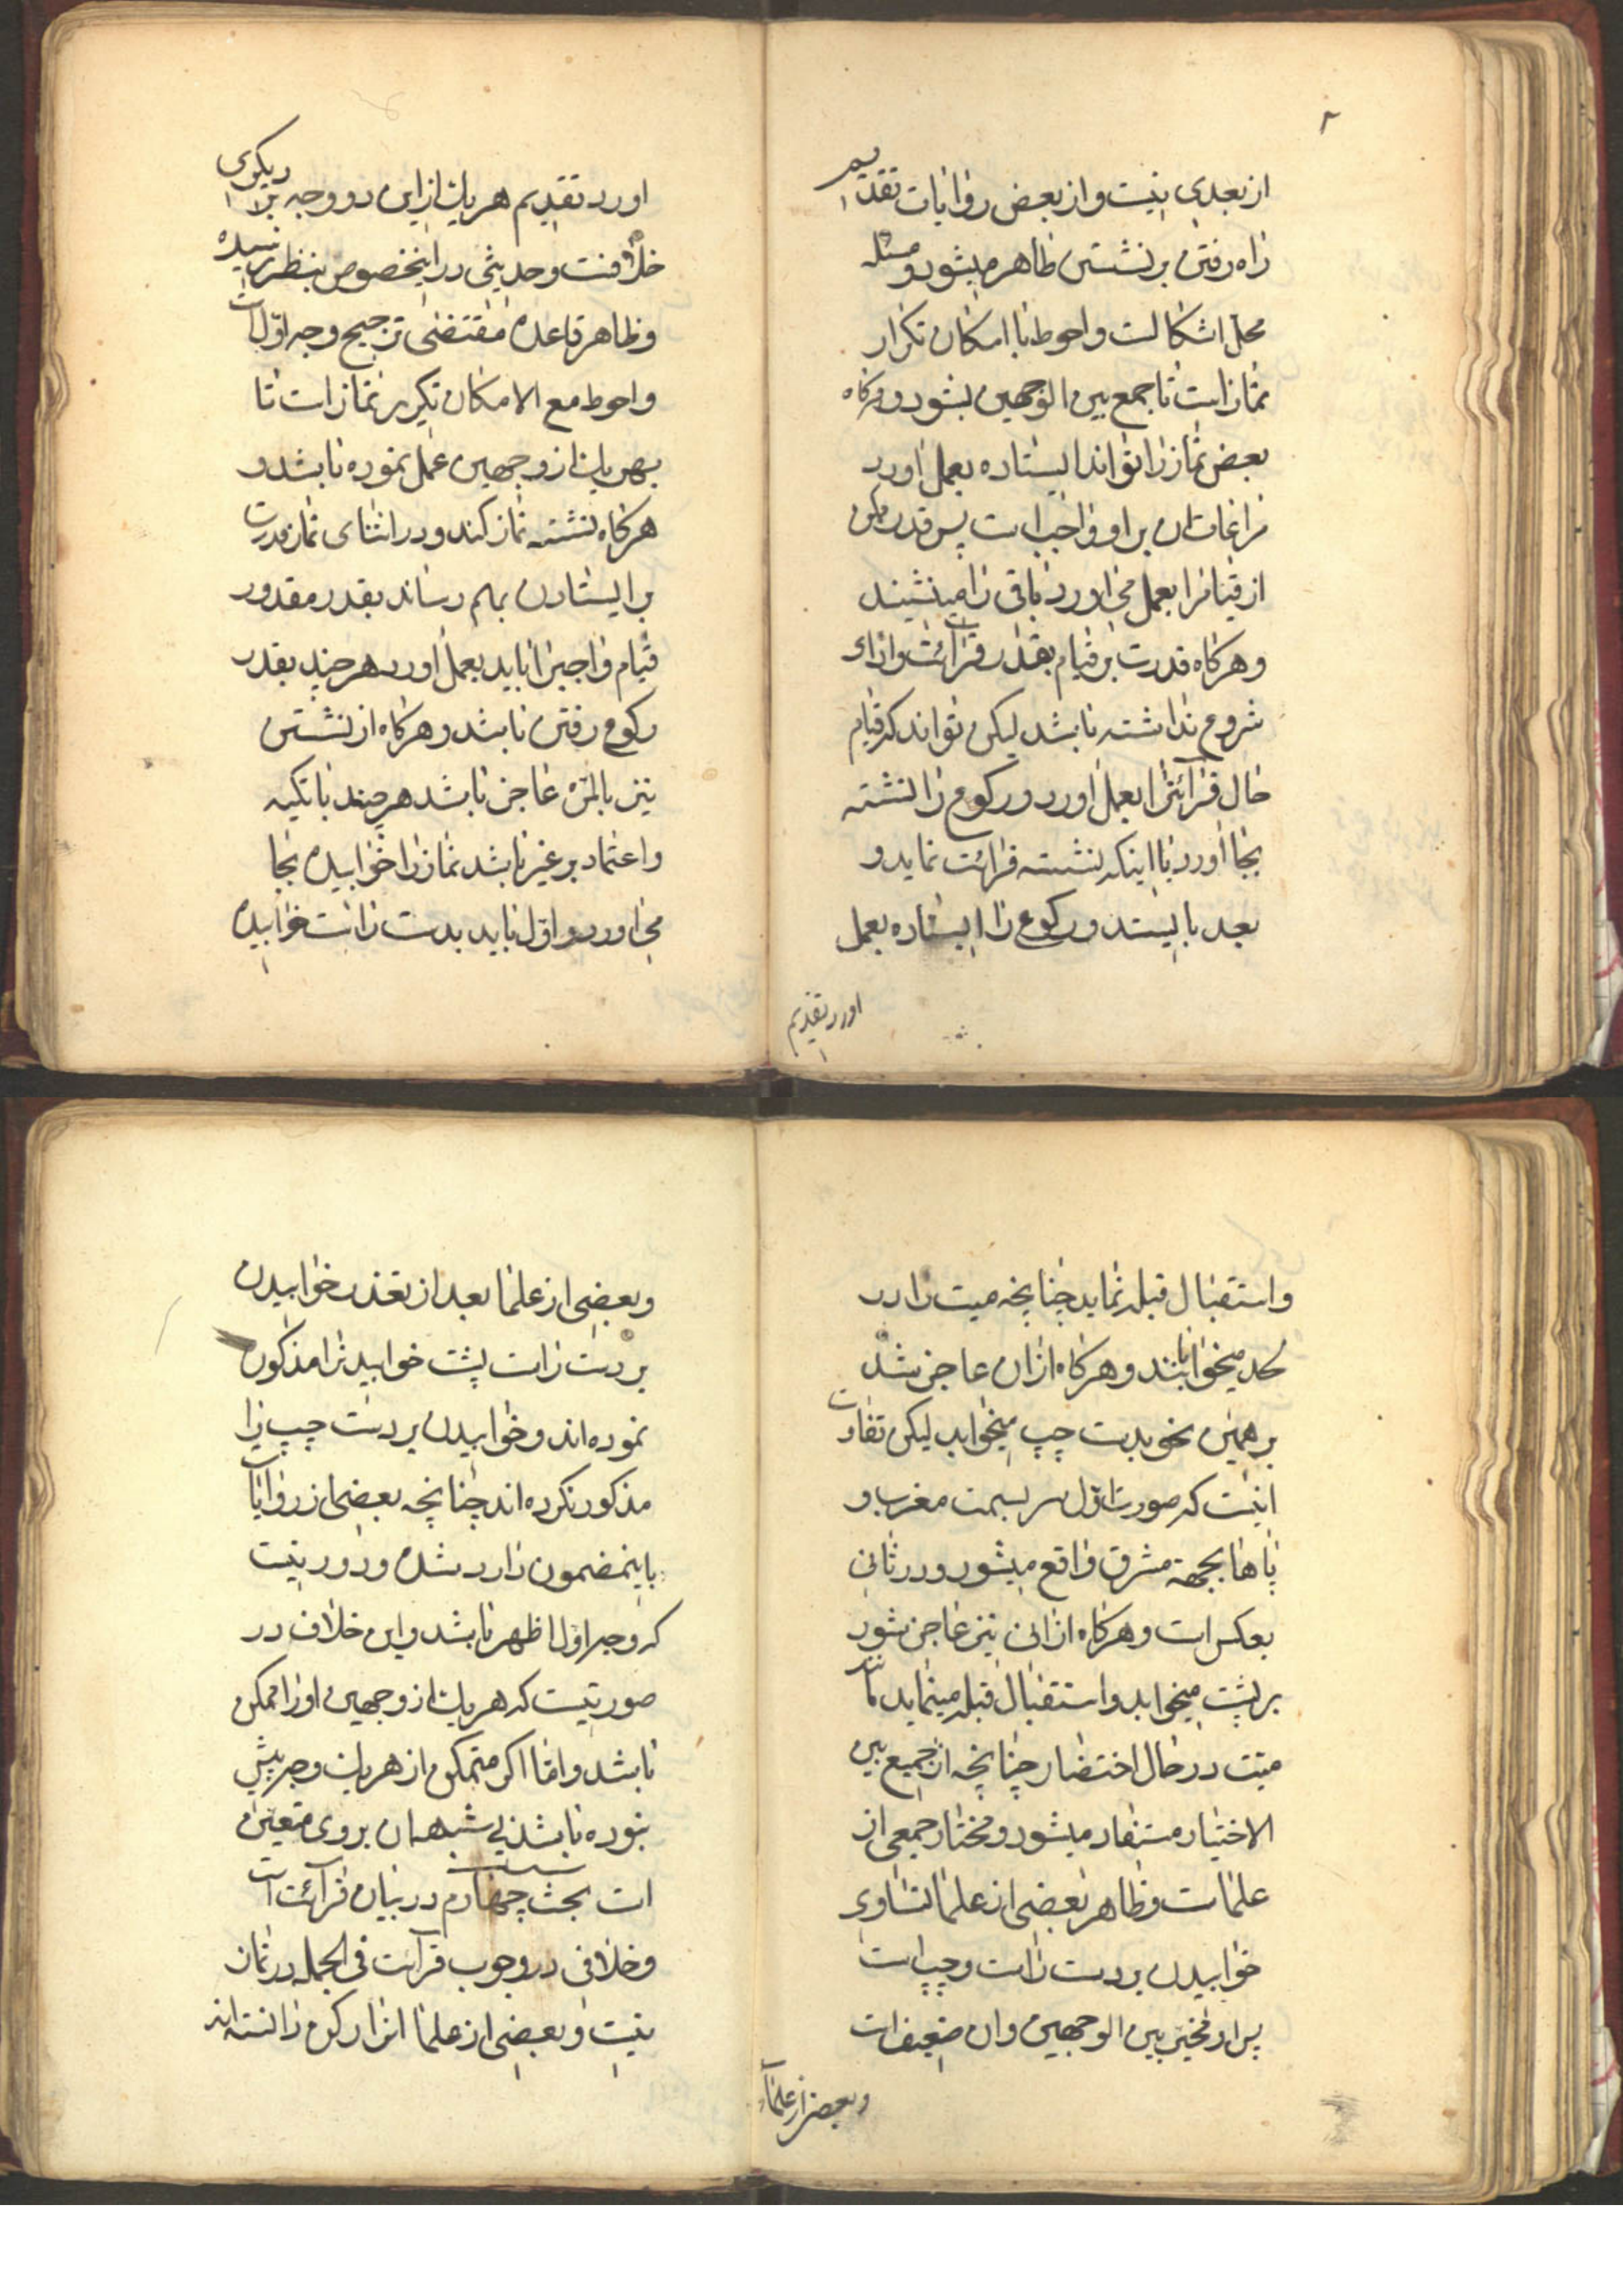 ۲
از بعدی نیست و از بعض روایات تقدیم
راه رفتن بر نشستن ظاهر میشود و مسئله
محل اشکالست و احوط با امکان تکرار
نماز است تا جمع بین الوجهین بشود و هرگاه
بعض نماز را تواند ایستاده بعمل اورد
مراعات ان بر او واجب است پس قدر ممکن
از قیام را بعمل می اورد و باقی را مینشیند
و هرگاه قدرت بر قیام بقدر قرائت و ازاء
شروع نداشته باشد لیکن تواند که قیام
حال قرائت را بعمل اورد و رکوع را نشسته
بجا اورد یا اینکه نشسته قرائت نماید و
بعد بایستد و رکوع را ایستاده بعمل
اورد تقدیم
اورد تقدیم هر یک از این دو وجه بر دیگری
خلافست و حدیثی در اینخصوص بنظر نرسیده
و ظاهر قاعده مقتضی ترجیح وجه اول است
و احوط مع الامکان تکریر نماز است تا
بهر یک از وجهین عمل نموده باشد و
هرگاه نشسته نماز کند و در اثنای نماز قدرت
بر ایستادن بهم رساند بقدر مقدور
قیام واجبرا باید بعمل اورد هر چند بقدر
رکوع رفتن باشد و هرگاه از نشستن
نیز بالمره عاجز باشد هر چند با تکیه
و اعتماد بر غیر باشد نماز را خوابیده بجا
می اورد و اول باید بدست راست خوابیده
و استقبال قبله نماید چنانچه میت را در
لحد میخوابانند و هرگاه از ان عاجز شد
بر همین نحو بدست چپ میخوابد لیکن تفاوت
اینست که صورت اول سر بسمت مغرب و
پاها بجهة مشرق واقع میشود و در ثانی
بعکس است و هرگاه از انی نیز عاجز شود
بر پشت میخوابد و استقبال قبله مینماید مانند
میت در حال احتضار چنانچه از جمیع بین
الاخبار مستفاد میشود و مختار جمعی از
علماست و ظاهر بعضی از علما تساوی
خوابیدن بر دست راست و چپ است
پس او مخیر بین الوجهین و ان ضعیف است
و بعضی از علماء
و بعضی از علما بعد از تعذر خوابیدن
بر دست راست پشت خوابیدنرا مذکور
نموده اند و خوابیدن بر دست چپ را
مذکور نکرده اند چنانچه بعضی از روایات
باینمضمون وارد شده و دور نیست
که وجه اول اظهر باشد و این خلاف در
صورتیست که هر یک از وجهین او را ممکن
باشد و اما اگر متمکن از هر یک وجه بیش
نبوده باشد بی شبهه ان بروی متعین
است بحث چهارم در بیان قرائت است
و خلافی در وجوب قرائت فی الجمله در نماز
نیست و بعضی از علما انرا رکن دانسته اند